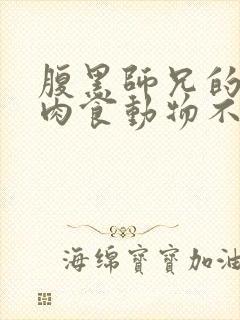 腹黑師兄的
肉食動物不
海绵寶寶加油